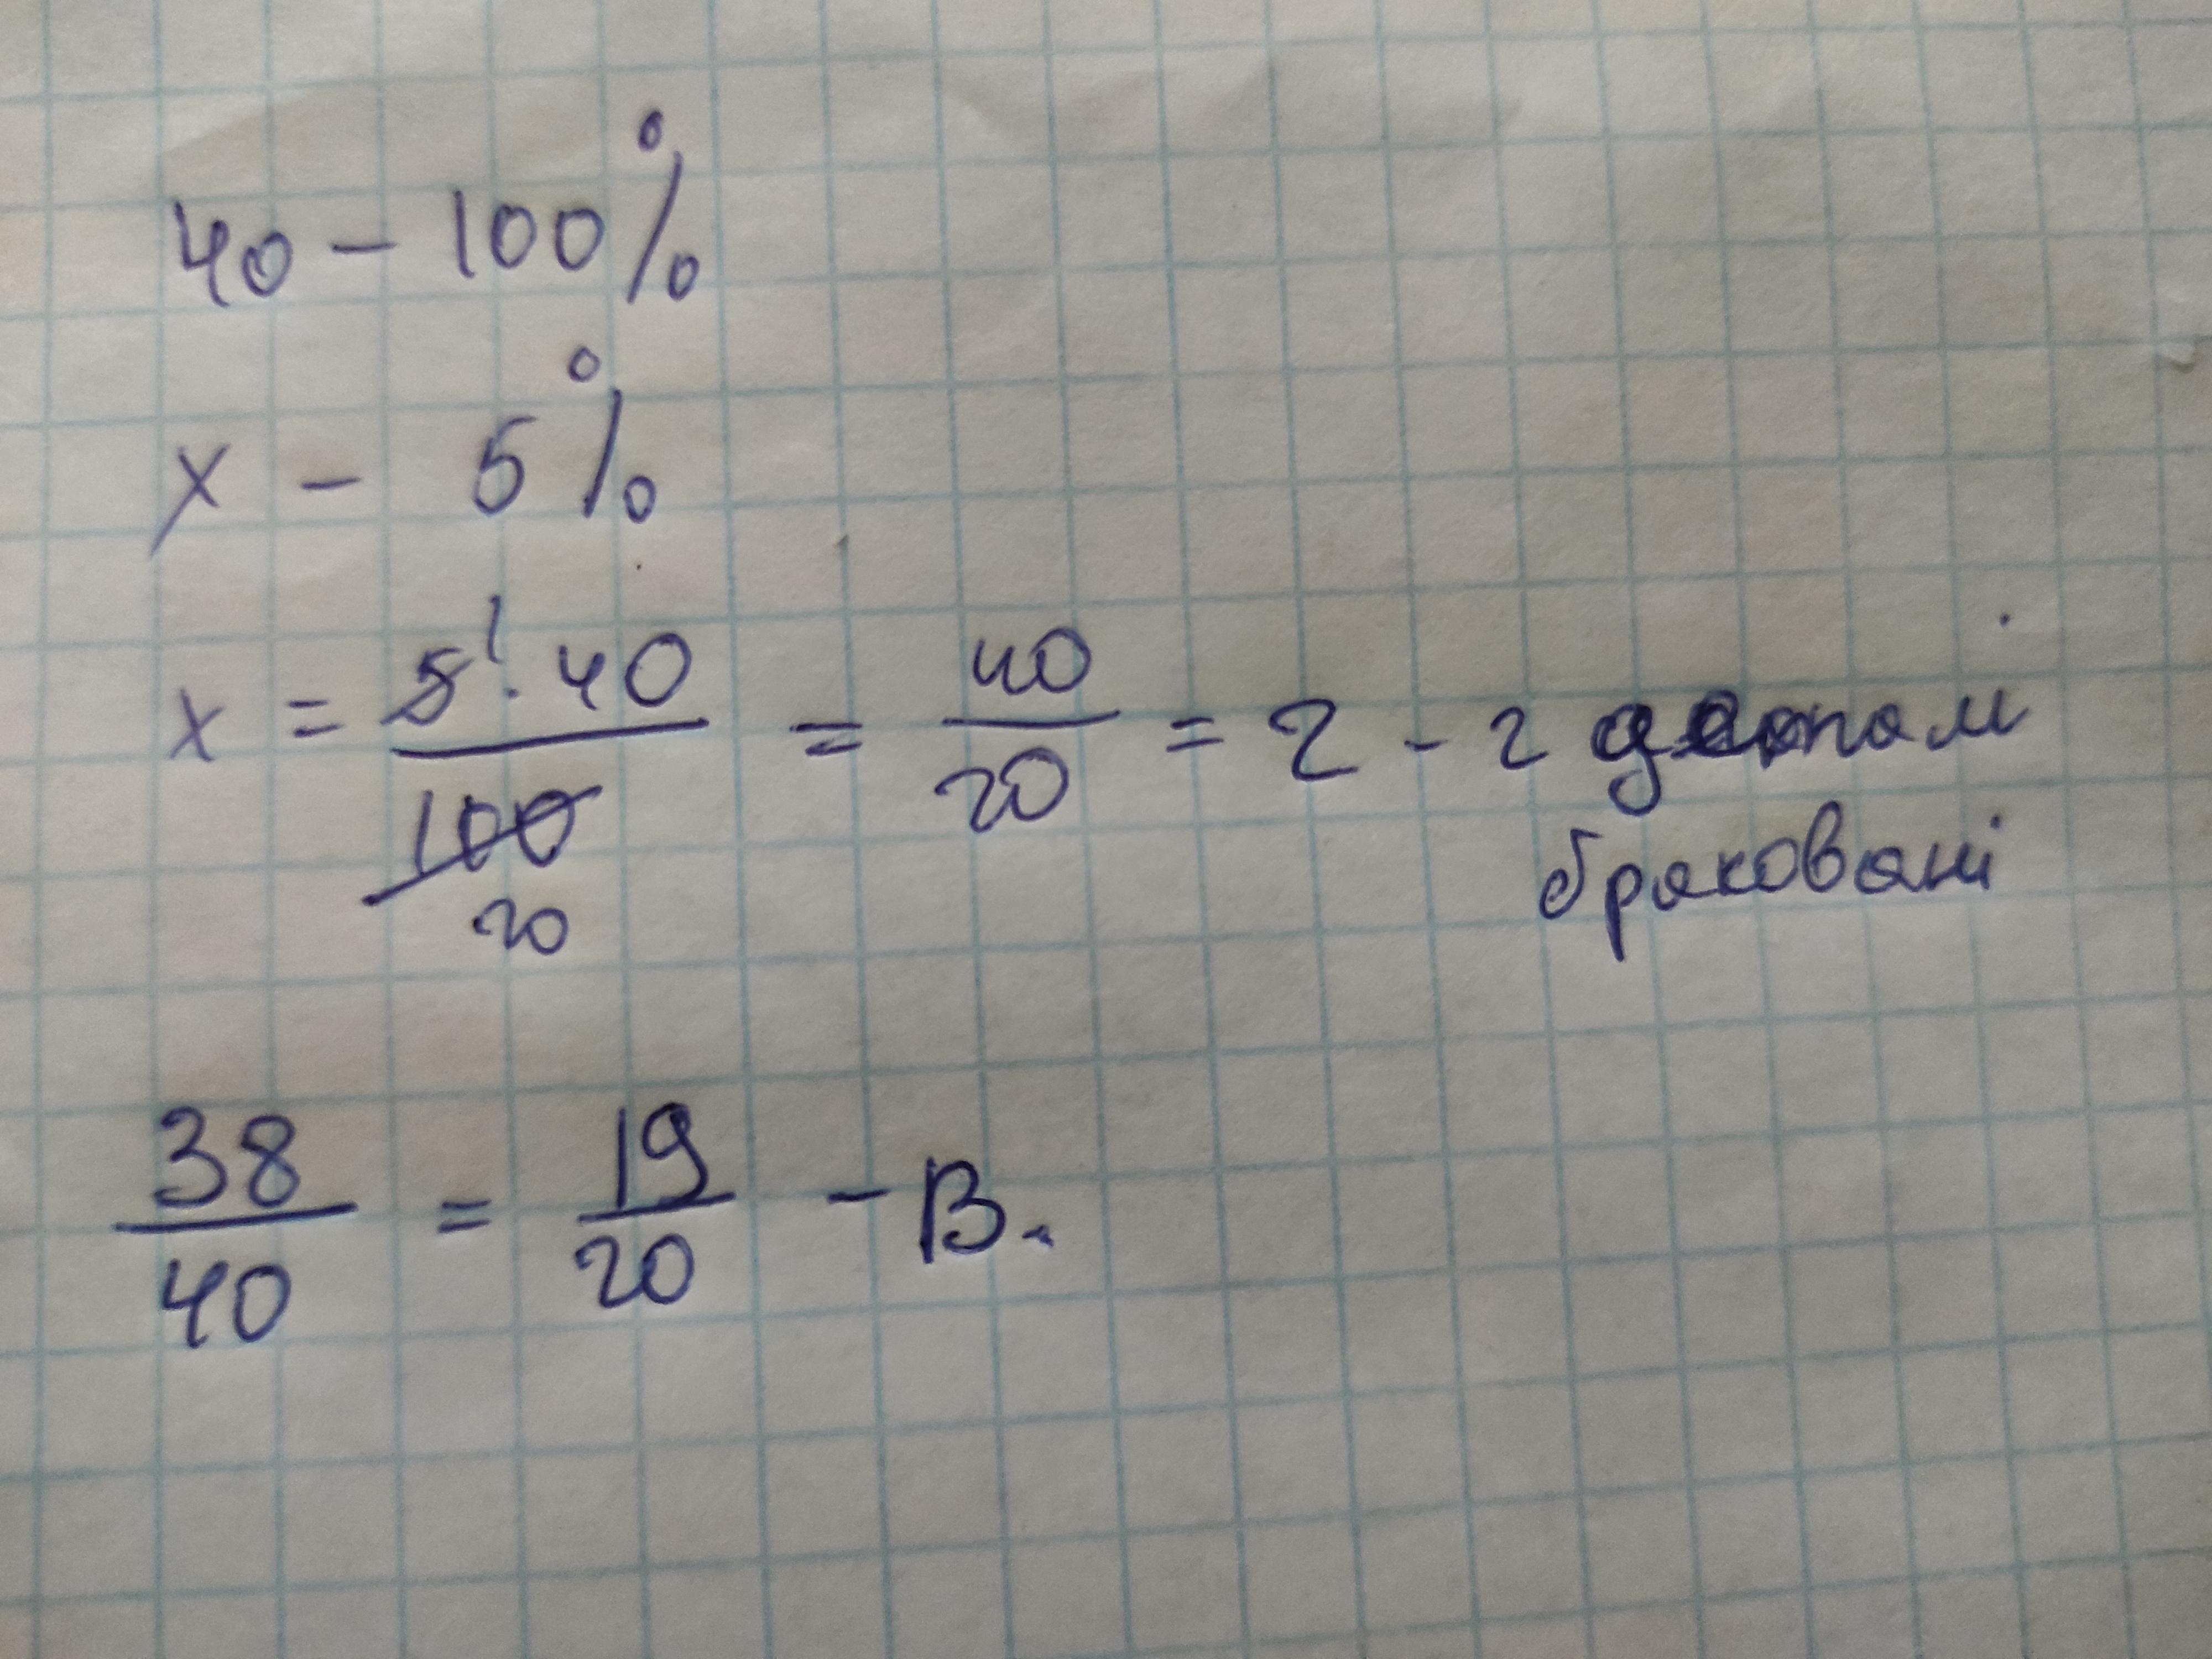 40 - 100%
x - 5%
x = 5¹ · 40 / 100 20 = 40 / 20 = 2 - 2
браковані
38 / 40 = 19 / 20 - В.